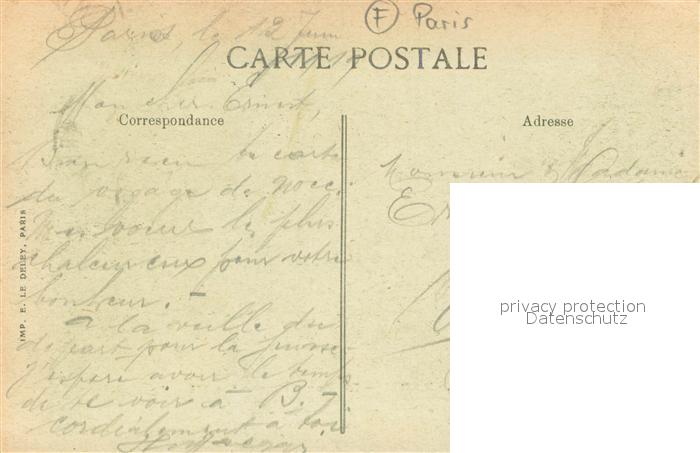 F Paris
Paris, le 12 Juin
CARTE POSTALE
Mon cher Ernest,
Correspondance
Adresse
Bien reçu ta carte
du voyage de noce.
Mes voeux les plus
chaleureux pour votre
bonheur. -
A la veille du
départ pour la
J'espère avoir le temps
de te voir à B.
cordialement à toi
Monsieur & Madame
IMP. E. LE DELEY, PARIS
privacy protection
Datenschutz